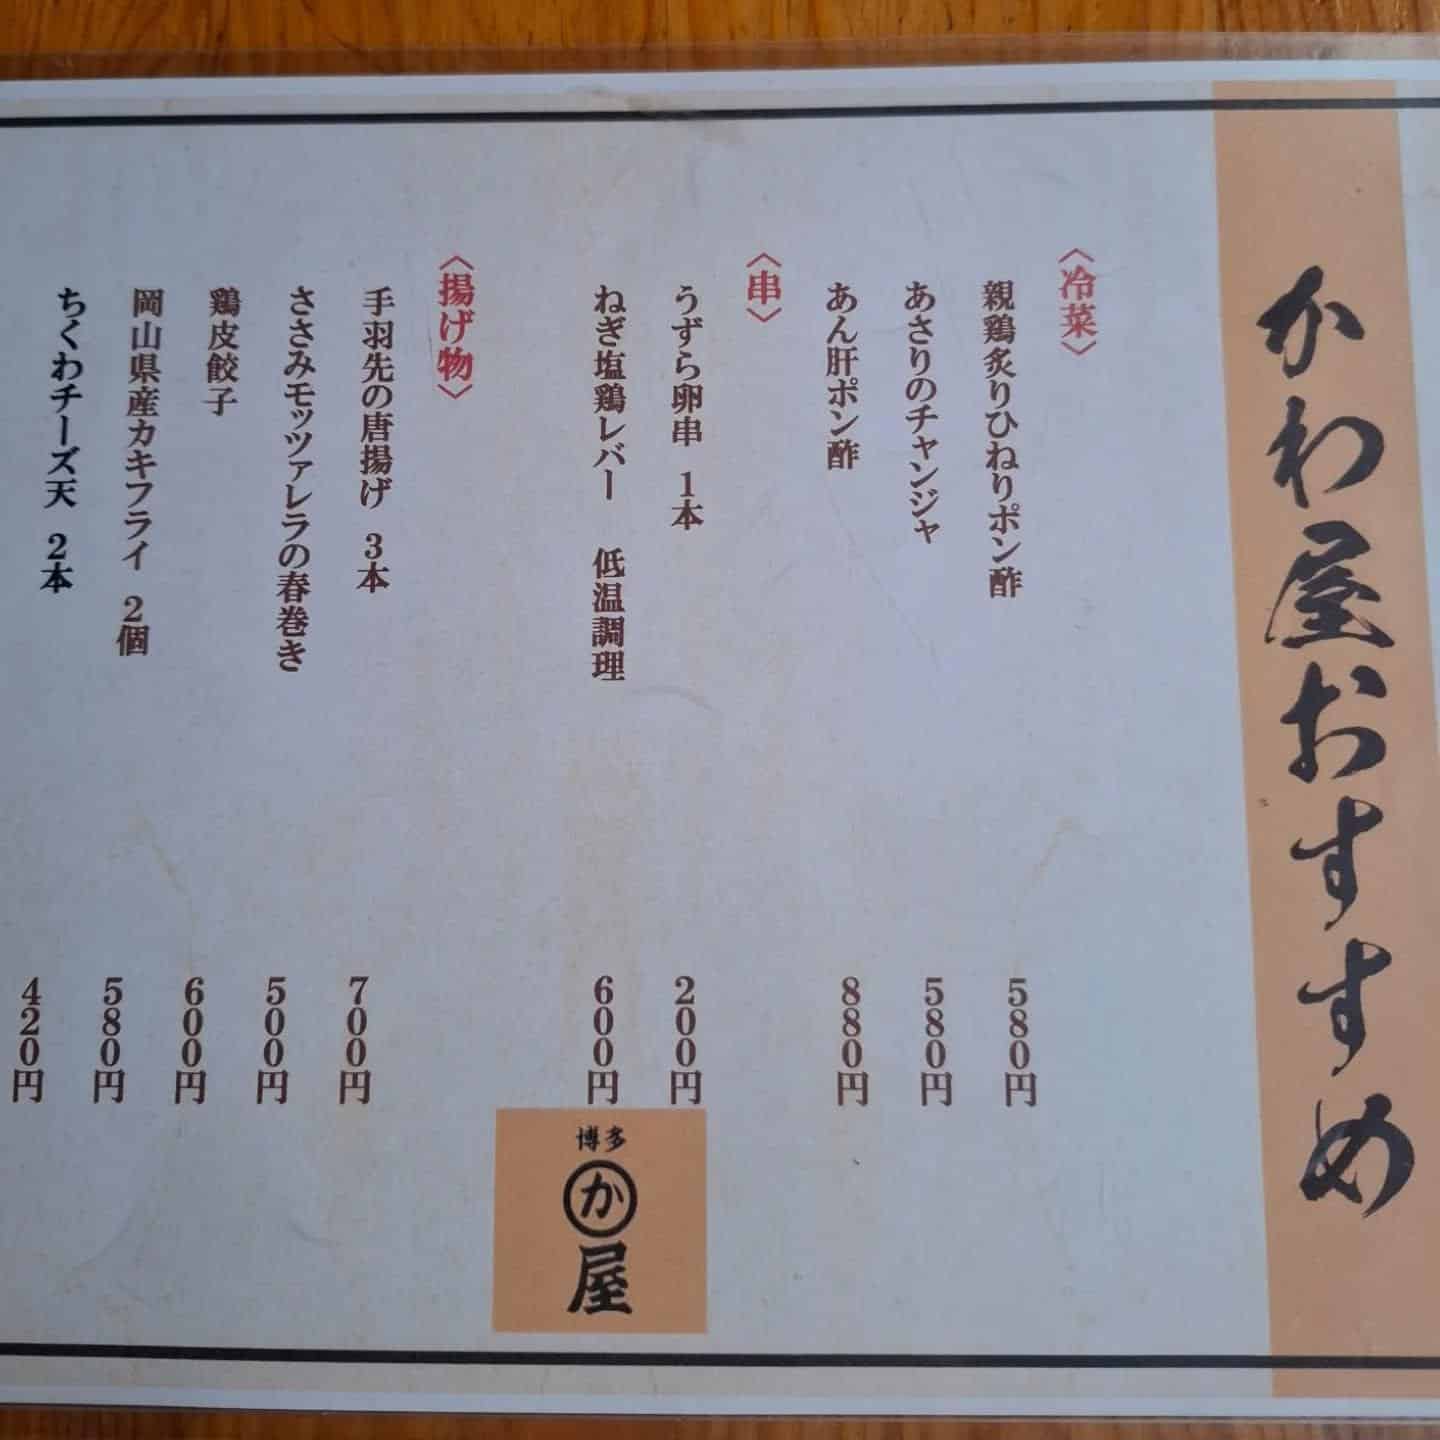 かわ屋おすすめ
〈冷菜〉
親鶏炙りひねりポン酢 580円
あさりのチャンジャ 580円
あん肝ポン酢 880円
〈串〉
うずら卵串 1本 200円
ねぎ塩鶏レバー 低温調理 600円
〈揚げ物〉
手羽先の唐揚げ 3本 700円
ささみモッツァレラの春巻き 500円
鶏皮餃子 600円
岡山県産カキフライ 2個 580円
ちくわチーズ天 2本 420円
博多
か
屋